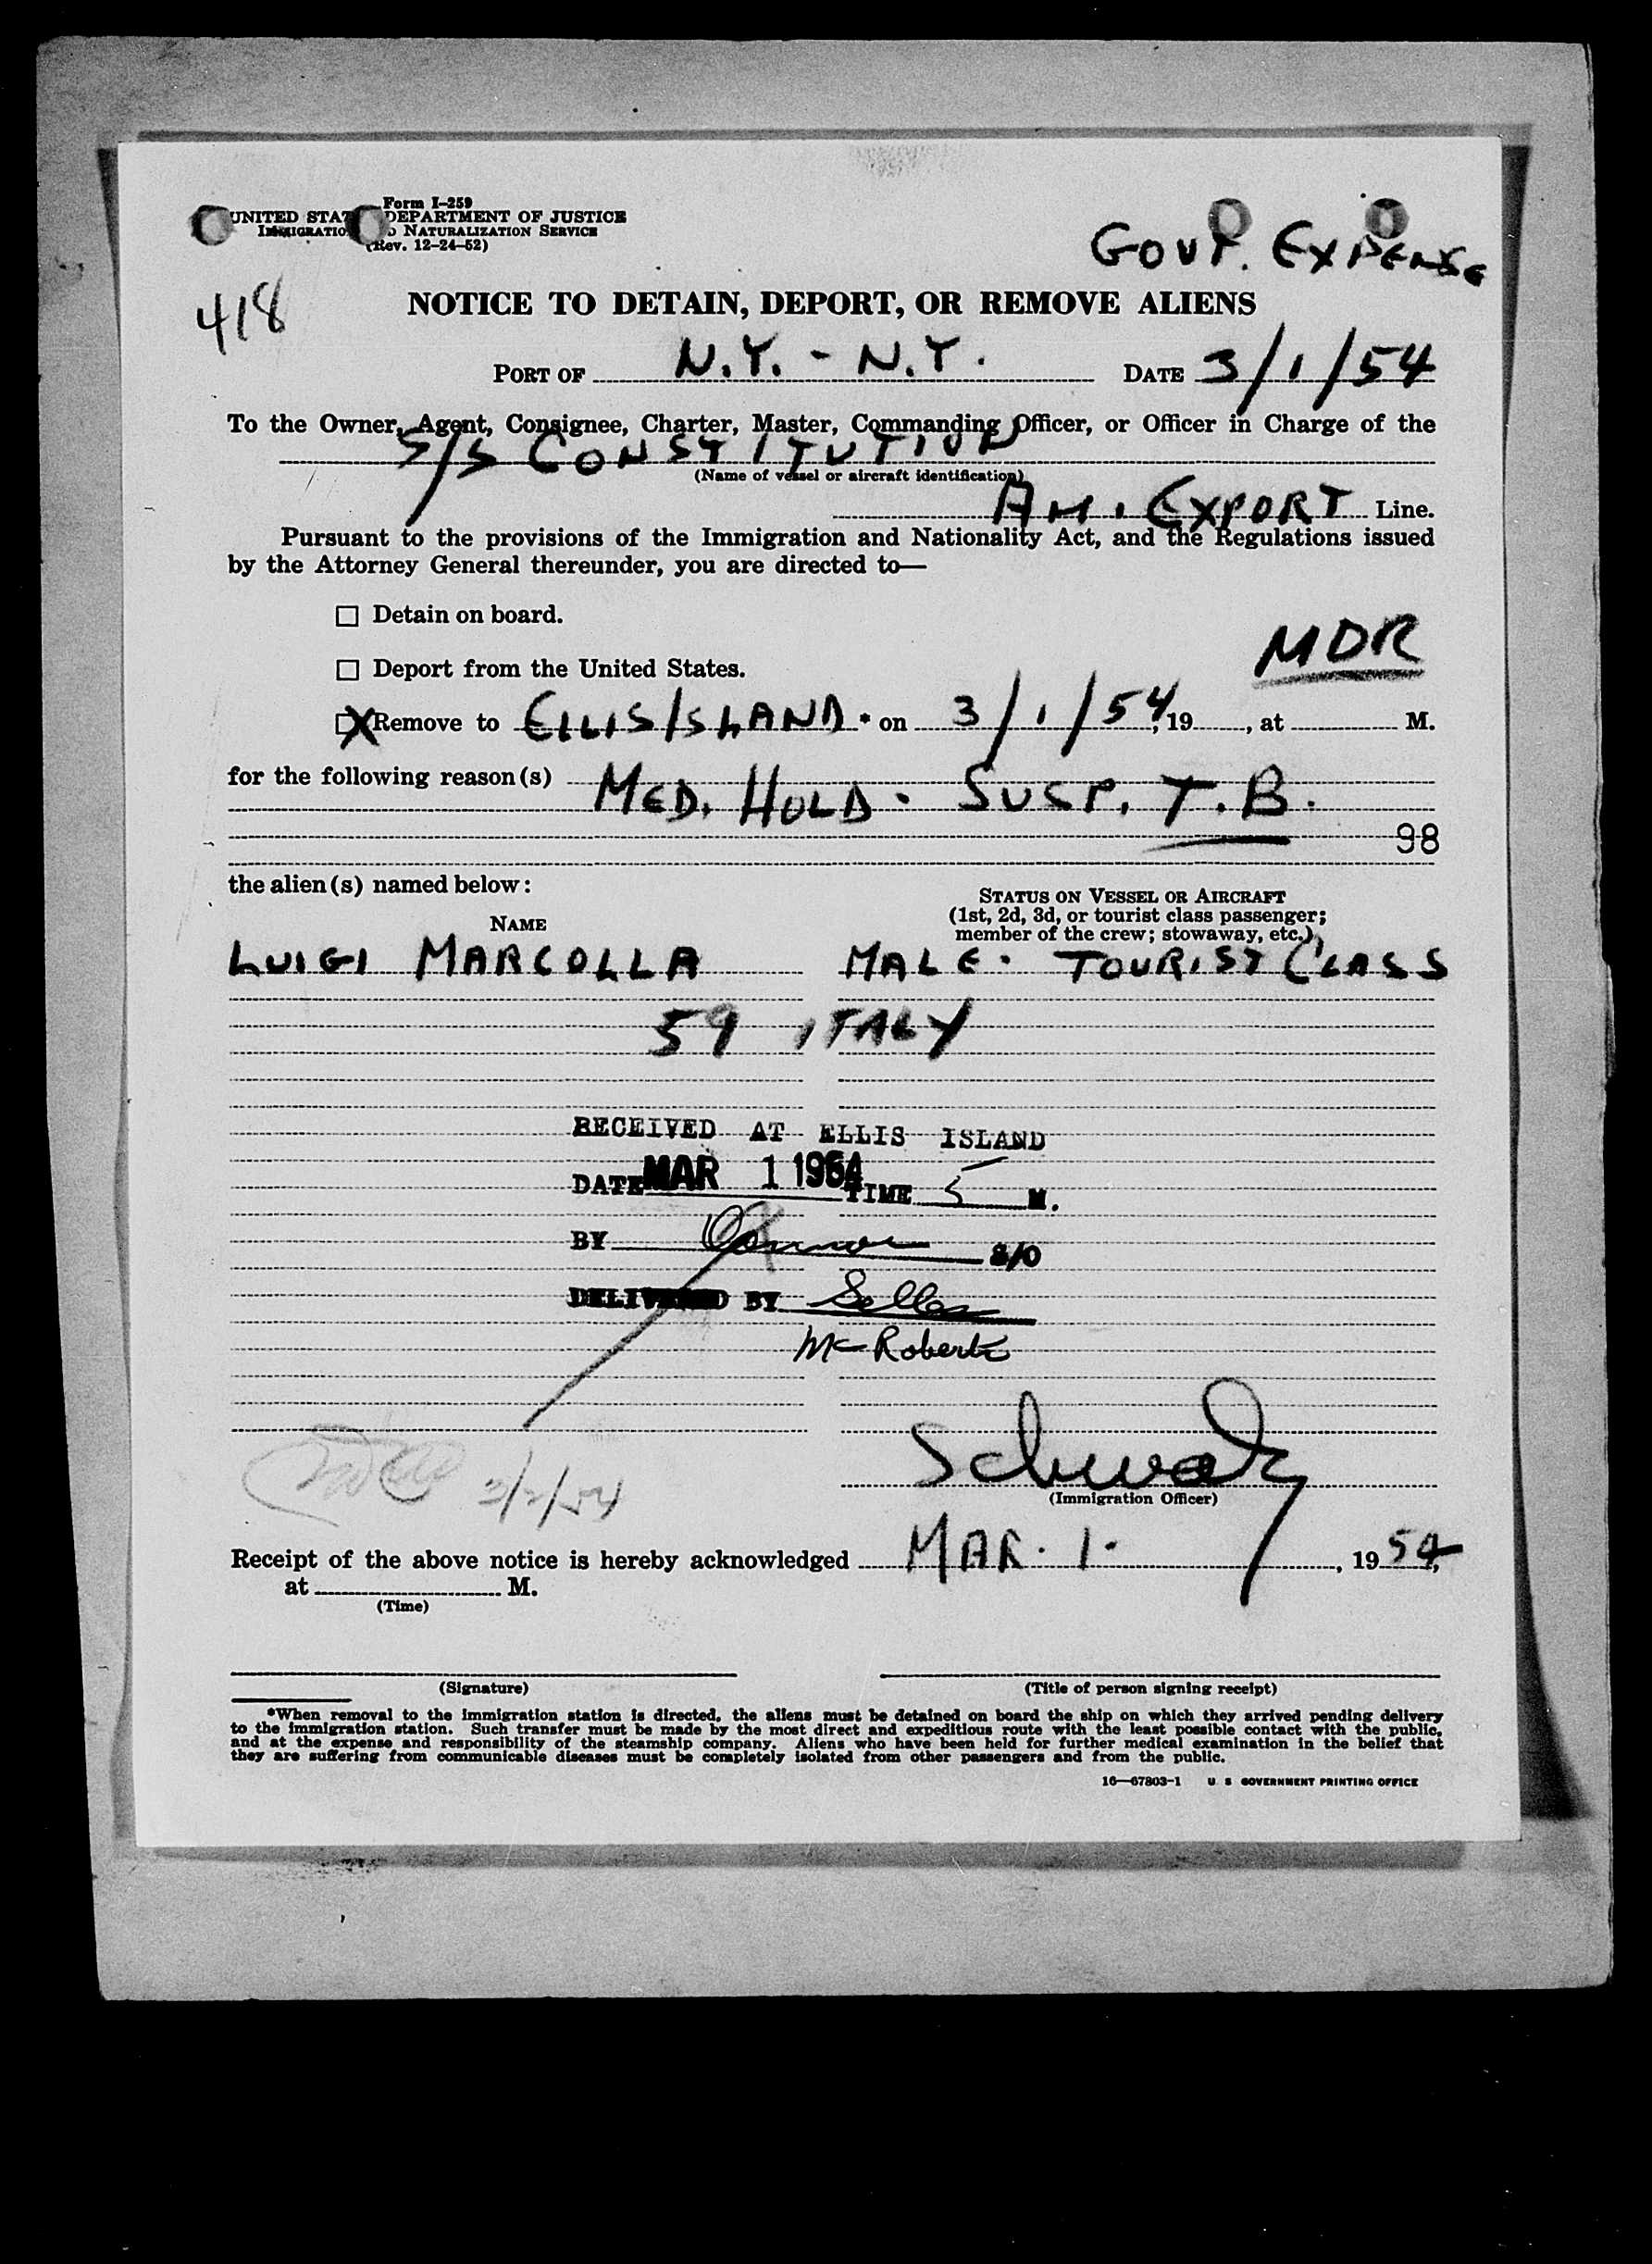 Form I-259
UNITED STA DEPARTMENT OF JUSTICE
IMMIGRATIO D NATURALIZATION SERVICE
(Rev. 12-24-52)
GOVT. EXPENSE
418
NOTICE TO DETAIN, DEPORT, OR REMOVE ALIENS
PORT OF N.Y. - N.Y. DATE 3/1/54
To the Owner, Agent, Consignee, Charter, Master, Commanding Officer, or Officer in Charge of the
S/S CONSTITUTION
(Name of vessel or aircraft identification)
AM. EXPORT Line.
Pursuant to the provisions of the Immigration and Nationality Act, and the Regulations issued
by the Attorney General thereunder, you are directed to—
☐ Detain on board.
MDR
☐ Deport from the United States.
☒ Remove to ELLIS ISLAND * on 3/1/54, 19, at M.
for the following reason(s) MED. HOLD. SUSP. T.B.
98
the alien(s) named below:
STATUS ON VESSEL OR AIRCRAFT
NAME (1st, 2d, 3d, or tourist class passenger;
member of the crew; stowaway, etc.)
LUIGI MARCOLLA MALE. TOURIST CLASS
59 ITALY
RECEIVED AT ELLIS ISLAND
DATE MAR 1 1954 TIME 5 M.
BY OConnor S/O
DELIVERED BY Seller
McRoberts
Schwartz
(Immigration Officer)
3/2/54
Receipt of the above notice is hereby acknowledged MAR. 1. , 1954,
at M.
(Time)
(Signature) (Title of person signing receipt)
*When removal to the immigration station is directed, the aliens must be detained on board the ship on which they arrived pending delivery
to the immigration station. Such transfer must be made by the most direct and expeditious route with the least possible contact with the public,
and at the expense and responsibility of the steamship company. Aliens who have been held for further medical examination in the belief that
they are suffering from communicable diseases must be completely isolated from other passengers and from the public.
16—67803-1 U. S GOVERNMENT PRINTING OFFICE